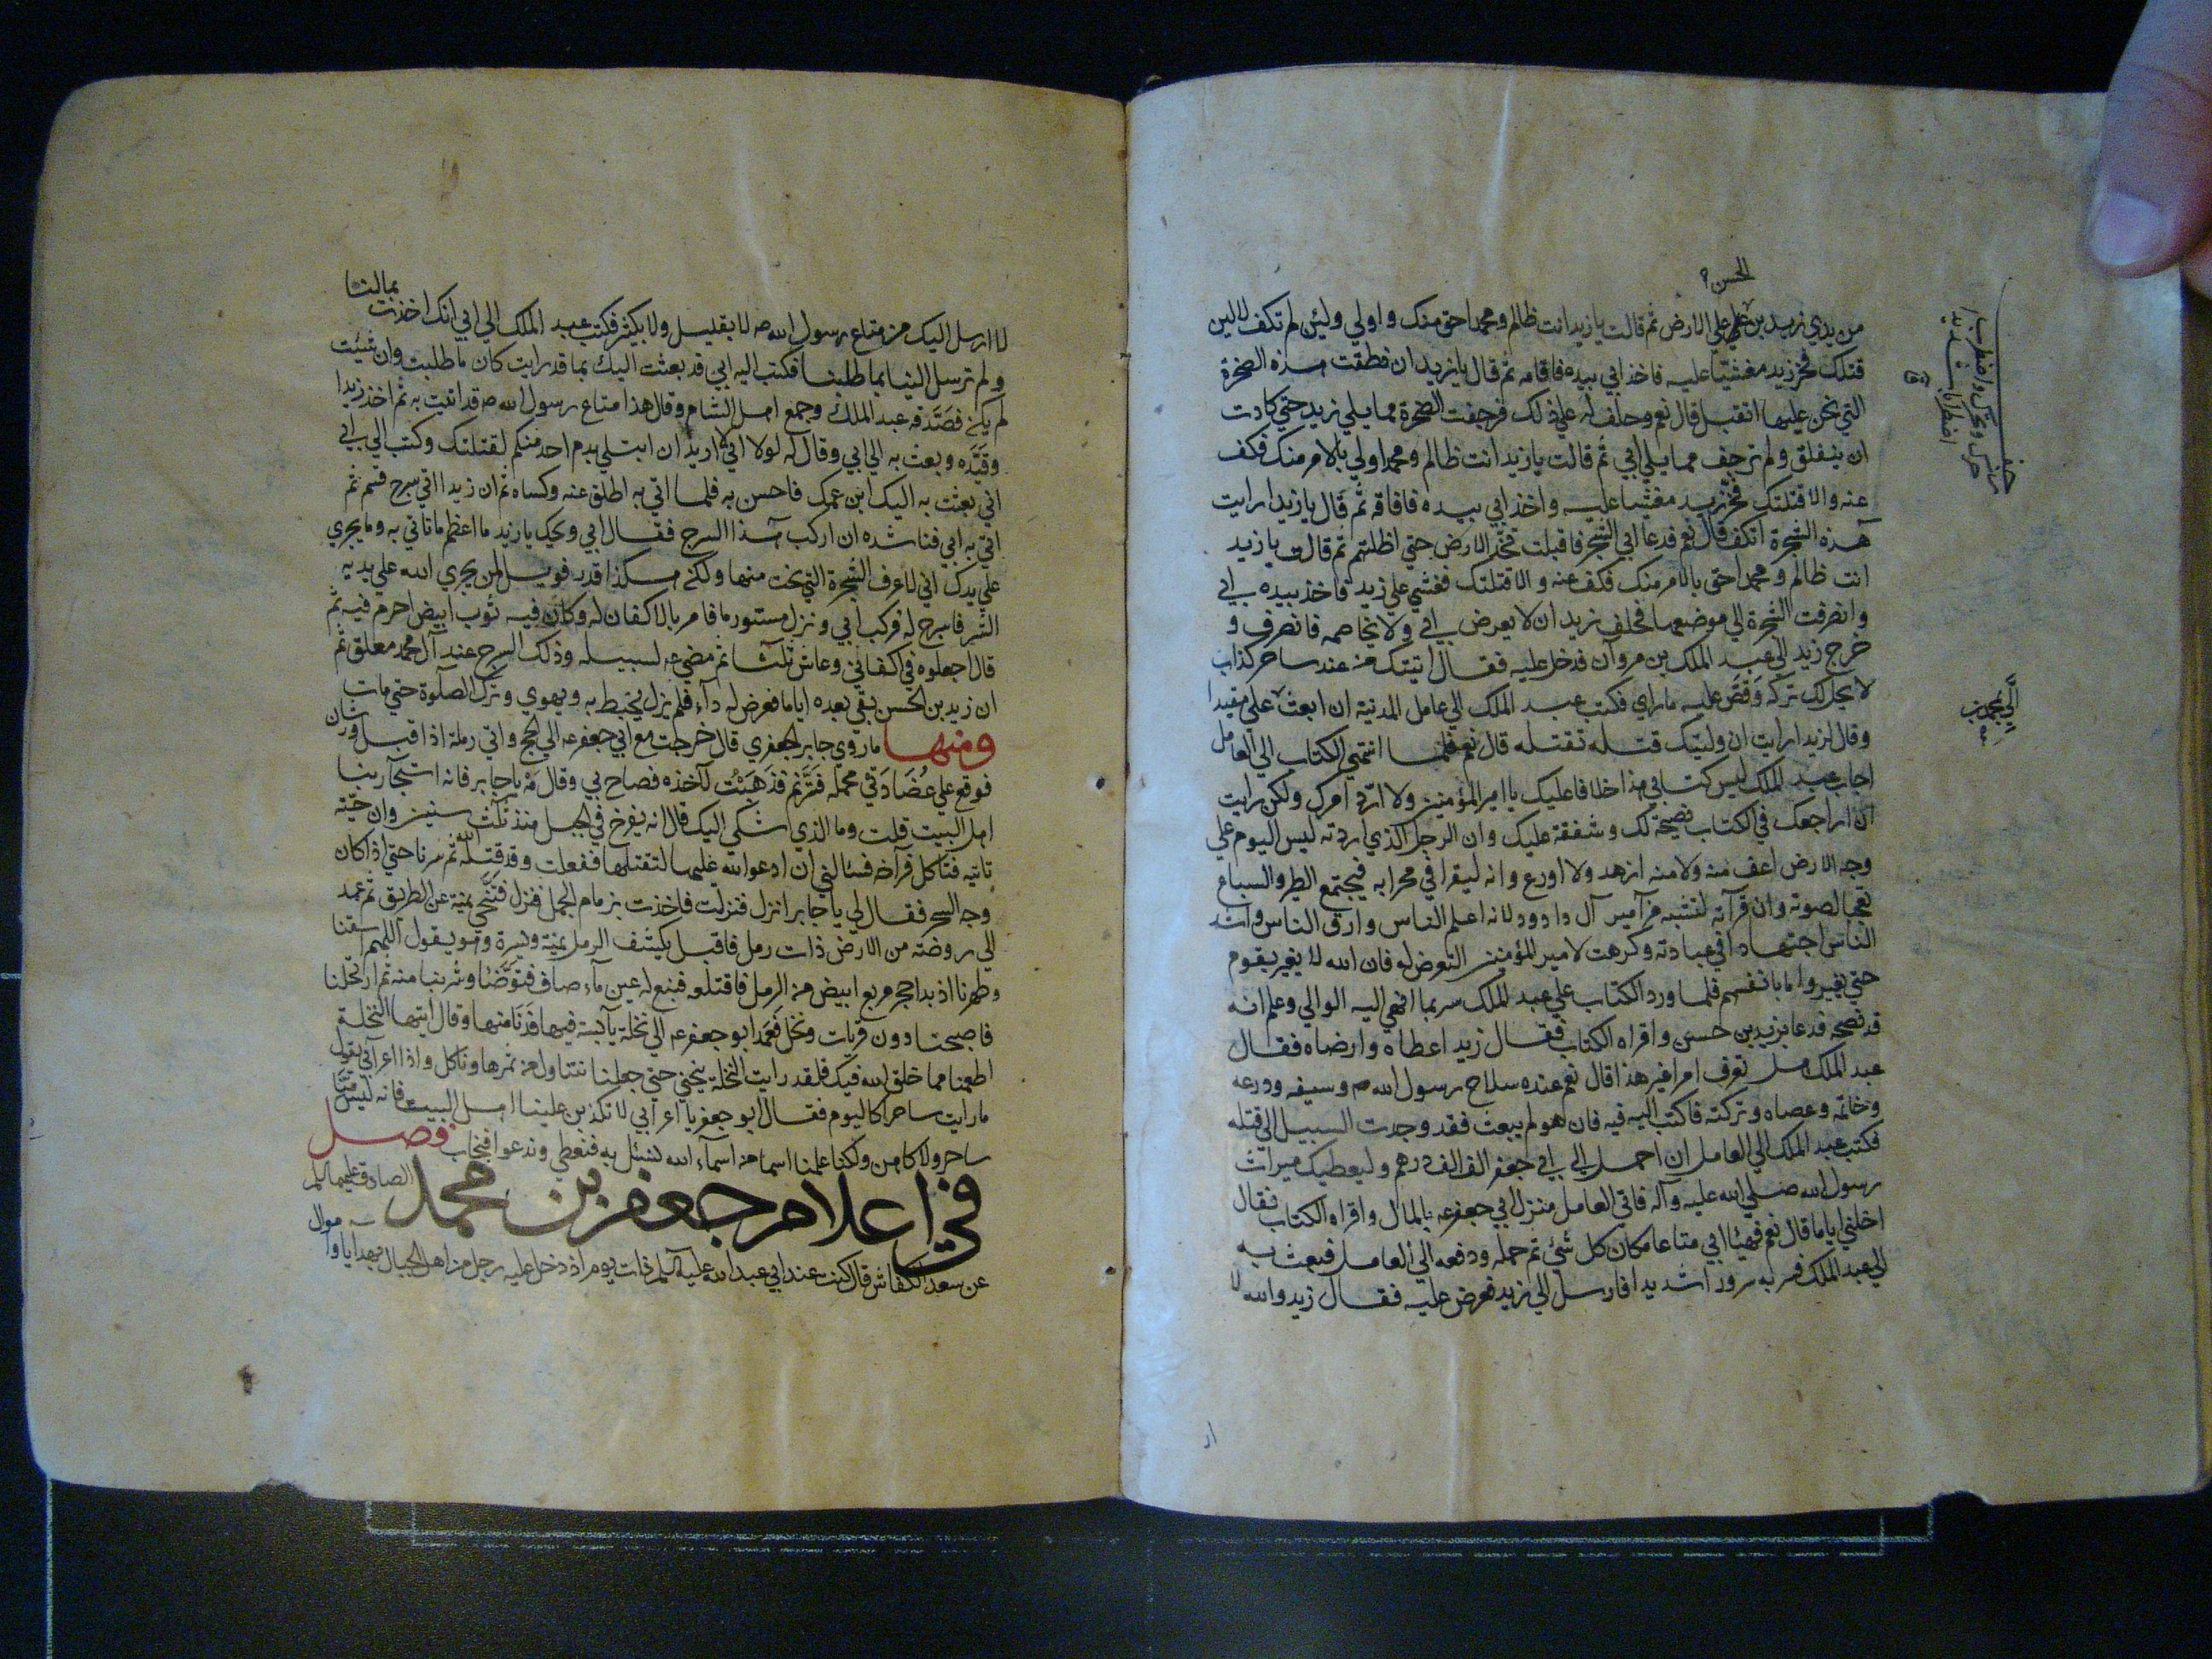 الحسن؟
من يدي زيد بن علي علي الارض ثم قالت يا زيد انت ظالم ومحمد احق منك و اولي ولئن لم تكف لالين
قتلك فخر زيد مغشيا عليه فاخذ ابي بيده فاقامه ثم قال يا زيد ان نطقت هذه الصخرة
التي نحن عليها اتقبل قال نعم وحلف له علي ذلك فرجفت الصخرة مما يلي زيد حتي كادت
ان ينفلق ولم ترجف مما يلي ابي ثم قالت يا زيد انت ظالم ومحمد اولي بالامر منك فكف
عنه والا قتلتك فخر زيد مغشيا عليه واخذ ابي بيده فاقاقه ثم قال يا زيد ارايت
هذه الشجرة اتكف قال نعم فدعا ابي الشجر فاقبلت تخد الارض حتي اظلتهم ثم قالت يا زيد
انت ظالم و محمد احق بالامر منك فكف عنه والا قتلتك فغشي علي زيد فاخذ بيده ابي
وانصرفت الشجرة الي موضعها فحلف زيد ان لا يعرض لابي ولا يخاصمه فانصرف و
خرج زيد الي عبد الملك بن مروان فدخل عليه فقال اتيتك من عند ساحر كذاب
لا يحل لك تركه وقص عليه ماراي فكتب عبد الملك الي عامل المدينة ان ابعث علي مقيدا
وقال لزيد ارايت ان وليتك قتله تقتله قال نعم فلما انتهي الكتاب الي العامل
اجاب عبد الملك ليس كتابي هذا خلافا عليك يا امير المؤمنين ولا ارد امرك ولكن رايت
ان اراجعك في الكتاب نصيحة لك وشفقة عليك وان الرجل الذي اردته ليس اليوم علي
وجه الارض اعف منه ولا منه ازهد ولا اورع وانه ليقرا في محرابه فيجتمع الطير والسباع
تعجبا لصوته وان قرآته لتشبه مزآمير آل داوود لانه اعلم الناس وارق الناس واشد
الناس اجتهادا في عبادته وكرهت لامير المؤمنين التعرض له فان الله لا يغير بقوم
حتي يغيروا ما بانفسهم فلما ورد الكتاب علي عبد الملك سر بما انهي اليه الوالي وعلم انه
قد نصحه فدعا بزيد بن حسن واقراه الكتاب فقال زيد اعطاه وارضاه فقال
عبد الملك هل تعرف امرا غير هذا قال نعم عنده سلاح رسول الله ص وسيفه ودرعه
وخاتمه وعصاه وتركته فاكتب اليه فيه فان هو لم يبعث فقد وجدت السبيل الي قتله
فكتب عبد الملك الي العامل ان احمل الي ابي جعفر الف الف درهم وليعطيك ميراث
رسول الله صلي الله عليه وآله فاتي العامل منزل ابي جعفر ع بالمال واقراه الكتاب فقال
اجلني اياما قال نعم فهيئا ابي متاعا مكان كل شئ ثم حمله ودفعه الي العامل فبعث به
الي عبد الملك فسر به سرورا شديدا فارسل الي زيد فعرض عليه فقال زيد والله لا
رجف
حرك وتحرك واضطرب
اضطرابا شديدا
(ق)
الي بمحمد بن
لا ارسل اليك من متاع رسول الله ص لا بقليل ولا بكثير فكتب عبد الملك الي ابي انك اخذت بمالنا
ولم ترسل الينا بما طلبنا فكتب اليه ابي قد بعثت اليك بما قد رايت كان ما طلبت وان شئت
لم يكن فصدقه عبد الملك وجمع اهل الشام وقال هذا متاع رسول الله ص قد اتيت به ثم اخذ زيدا
وقيده وبعث به الي ابي وقال له لولا اني لا اريد ان ابتلي بدم احد منكم لقتلتك وكتب الي ابي
اني بعثت به اليك ابن عمك فاحسن به فلما اتي به اطلق عنه وكساه ثم ان زيدا اتي بسرج فسم ثم
اتي به ابي فناشده ان اركب هذا السرج فقال ابي ويحك يا زيد ما اعظم ما تاتي به وما يجري
علي يدك اني لاعرف الشجرة التي نحت منها ولكن هكذا قدر فويل لمن يجري الله علي يديه
الشر فاسرج له فركب ابي ونزل متورما فامر بالاكفان له وكان فيه ثوب ابيض احرم فيه ثم
قال اجعلوه في اكفاني وعاش ثلثا ثم مضي ع لسبيله وذلك السرج عند آل محمد معلق ثم
ان زيد بن الحسن بقي بعده اياما فعرض له دآء فلم يزل يتخبط به ويهوي وترك الصلوة حتي مات
ومنها ما روي جابر الجعفري قال خرجت مع ابي جعفر ع الي الحج واتي رملة اذا اقبل ورشان
فوقع علي عضادتي محمله فترنم فذهبت لآخذه فصاح بي وقال مه يا جابر فانه استجآر بنا
اهل البيت قلت وما الذي اشتكي اليك قال انه يفرخ في الجبل منذ ثلث سنين وان حية
تاتيه فتاكل فرآخه فسئالني ان ادعو الله عليها لتقتلها ففعلت وقد قتله الله ثم سرنا حتي اذا كان
وجه السحر فقال لي يا جابر انزل فنزلت فاخذت بزمام الجمل فنزل فتنحي يمنة عن الطريق ثم عمد
الي روضة من الارض ذات رمل فاقبل يكشف الرمل يمنة ويسرة وهو يقول اللهم اسقنا
وطهرنا اذ بدا حجر مربع ابيض من الرمل فاقتلعه فنبع له عين مآء صاف فتوضا وشربنا منه ثم ارتحلنا
فاصبحنا دون قريات ونخل فعمد ابو جعفر ع الي نخلة يآبسة فيها فدنا منها وقال ايتها النخلة
اطعمنا مما خلق الله فيك فلقد رايت النخلة ينحني حتي جعلنا نتناول من ثمرها وناكل واذا اعرآبي يقول
ما رايت ساحرا كاليوم فقال ابو جعفر يا اعرابي لا تكذبن علينا اهل البيت فانه ليس منا
ساحر ولا كاهن ولكنا علمنا اسما من اسمآء الله نسئل به فنعطي وندعوا فنجاب فصل
في اعلام جعفر بن محمد الصادق عليهما السلم
عن سعد الكفاش قال كنت عند ابي عبد الله عليه السلم ذات يوم اذ دخل عليه رجل من اهل الجبال بهدايا واموال